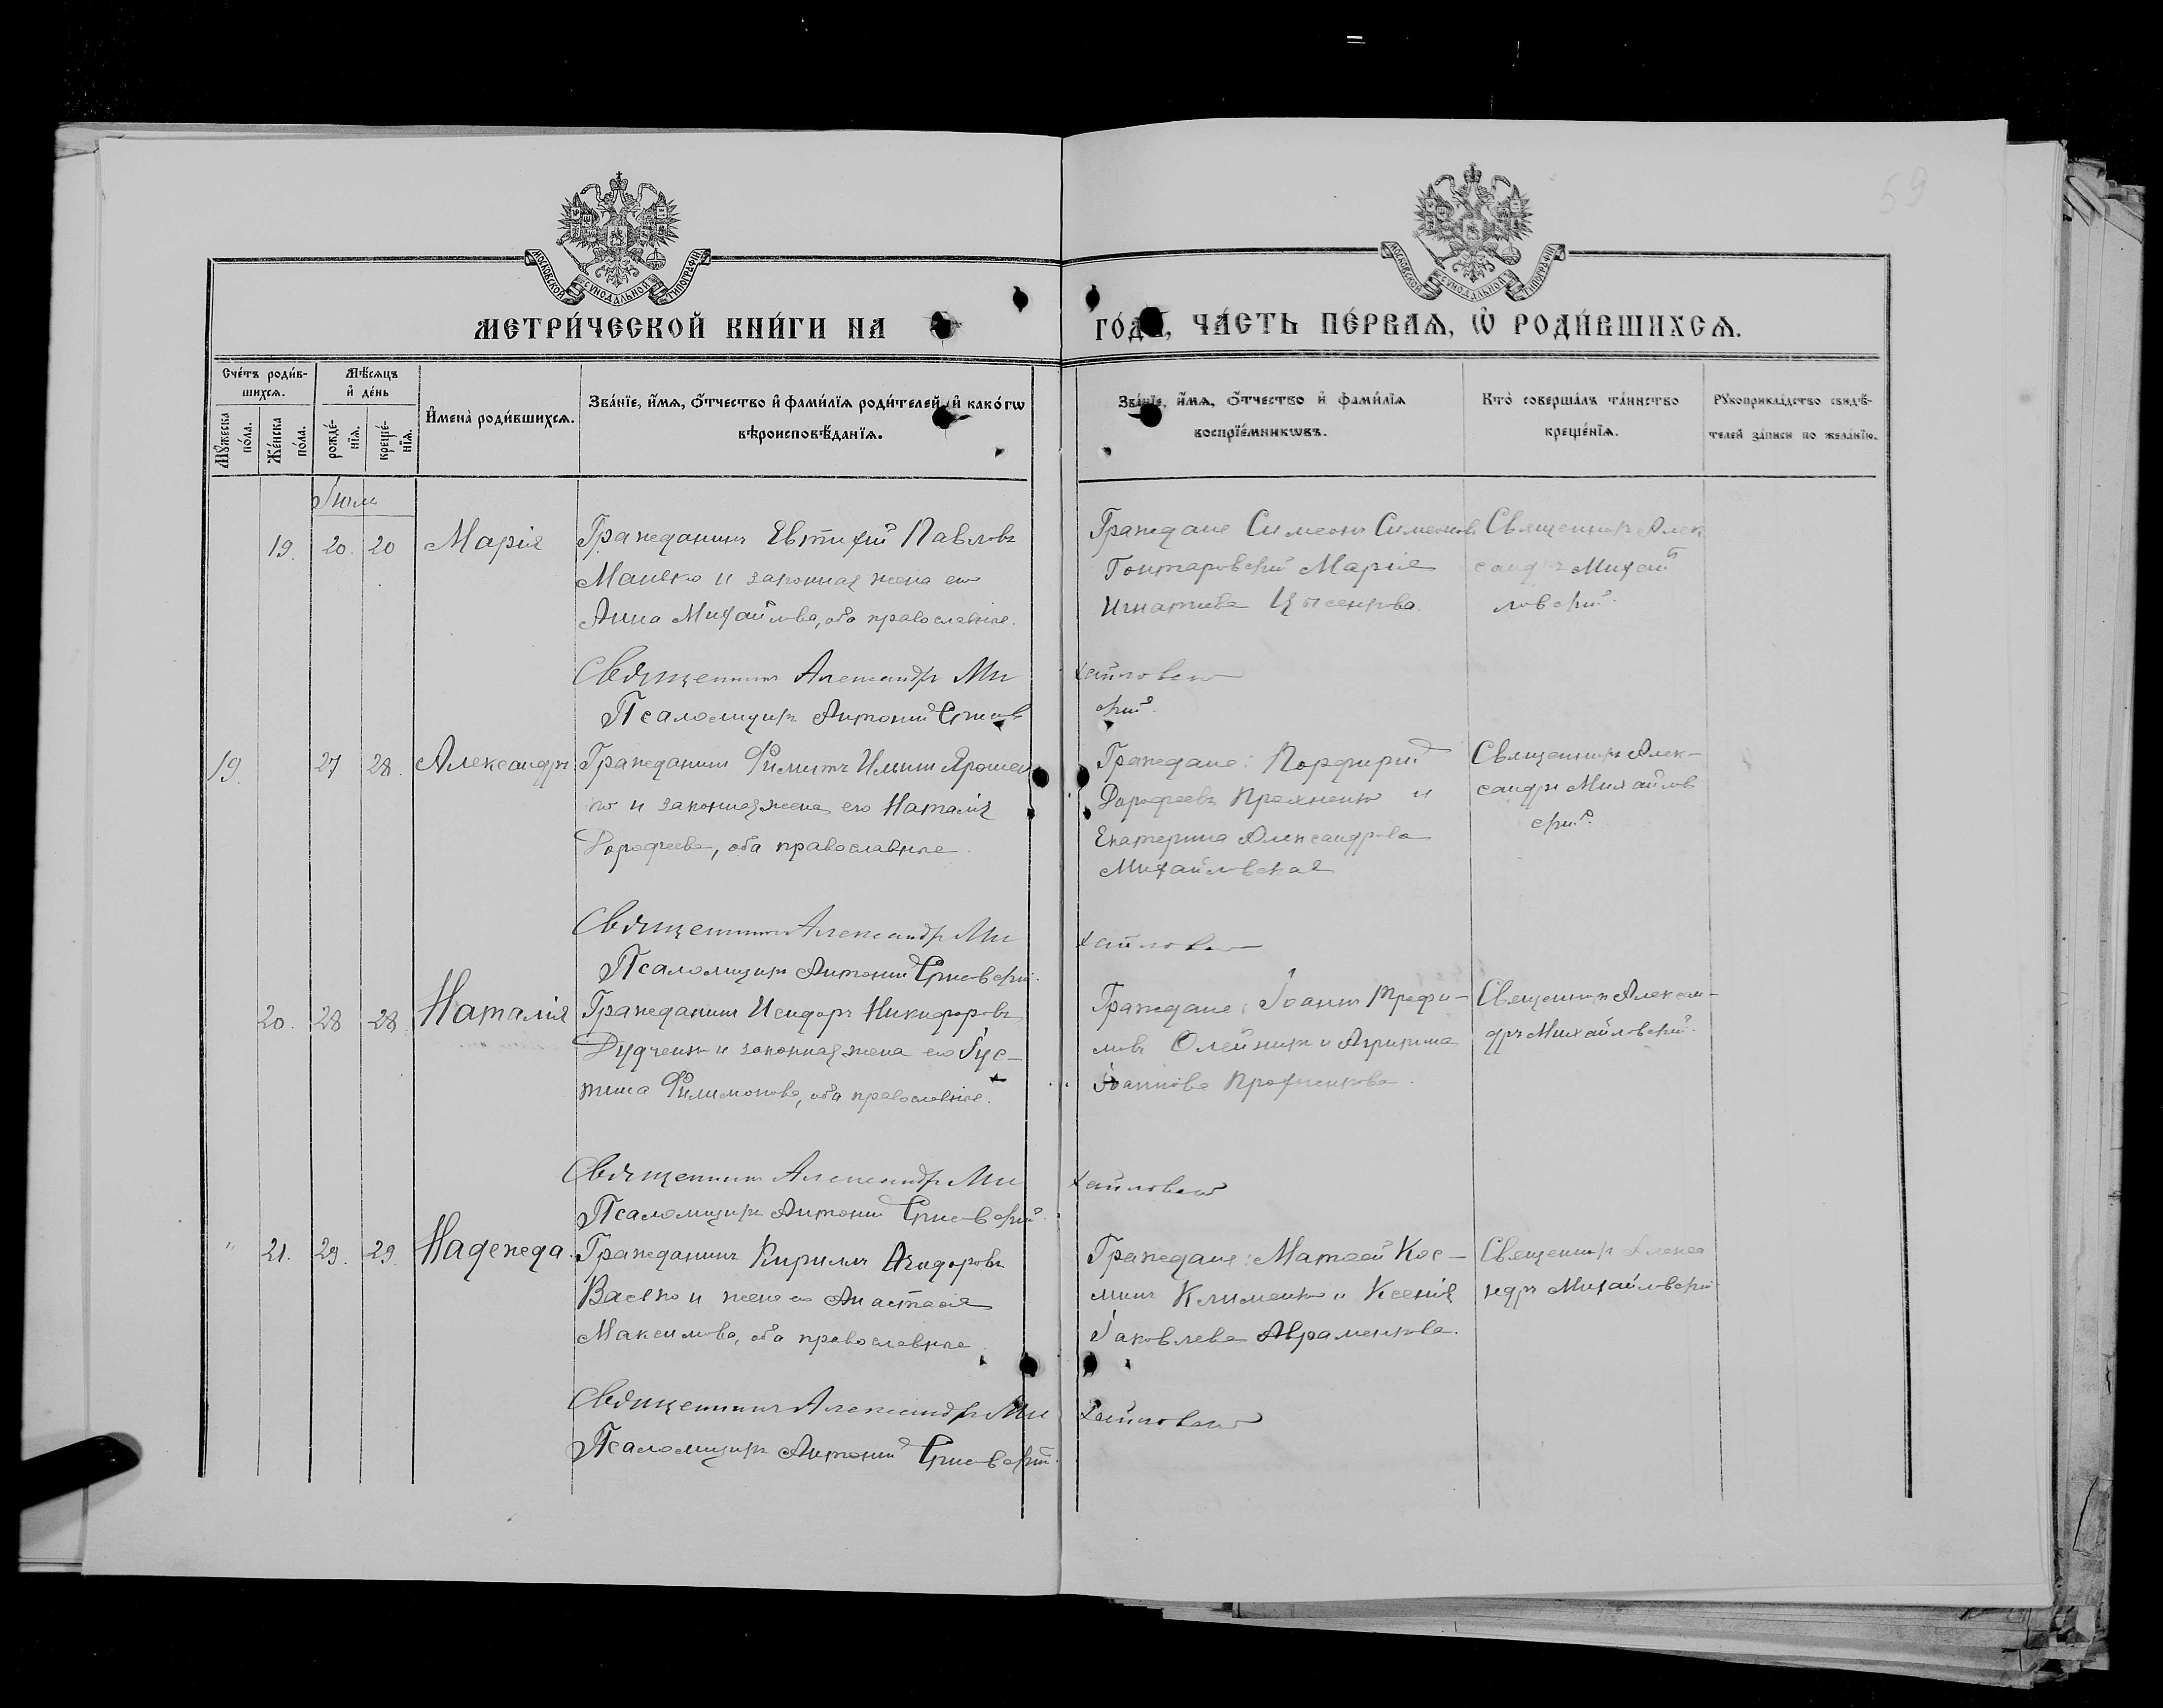 59
МОСКОВСКОЙ СУНОДАЛЬНОЙ ТИПОГРАФІИ
МОСКОВСКОЙ СУНОДАЛЬНОЙ ТИПОГРАФІИ
МЕТРИ́ЧЕСКОЙ КНИ́ГИ НА
ГО́ДЪ, ЧА́СТЬ ПЕ́РВАѦ, Ѡ҆ РОДИ́ВШИХСѦ.
Сче́тъ роди́в-
шихсѧ.
Мꙋ́жеска по́ла.
Же́нска по́ла.
Мѣ́сѧцъ
и҆ де́нь
рожде́-нїѧ.
креще́-нїѧ.
И҆мена̀ роди́вшихсѧ.
Зва́нїе, и҆́мѧ, ѻ҆́тчество и҆ фами́лїѧ роди́телей, и҆ како́гѡ
вѣроисповѣ́данїѧ.
Зва́нїе, и҆́мѧ, ѻ҆́тчество и҆ фами́лїѧ
воспрїе́мникѡвъ.
Кто̀ соверша́лъ та́инство
креще́нїѧ.
Рꙋкоприкла́дство свидѣ́-
телей за́писи по жела́нїю.
Іюль
19. 20. 20 Марія
Гражданинъ Евтихій Павловъ
Манько и законная жена его
Анна Михайлова, оба православные.
Граждане Симеонъ Симеоновъ
Гонтаровскій Марія
Игнатиева
Священникъ Алек
сандръ Михай
ловскій.
Священникъ Александръ Ми
хайловск
Псаломщикъ Антоній
скій.
19. 27 28. Александръ
Гражданинъ Ярошен
ко и законная жена его Наталія
Дорофеева, оба православные.
Граждане: Порфирій
Дорофеевъ и
Екатерина Александрова
Михайловская
Священникъ Алек-
сандръ Михайлов
скій.
Священникъ Александръ Ми
хайловск
Псаломщикъ Антоній
20. 28 28. Наталія
Гражданинъ Исидоръ Никифоровъ
Дудченко и законная жена его Іус-
тина Филимонова, оба православные.
Граждане: Іоаннъ Трофи-
мовъ Олейникъ и Агрипина
Іоаннова
Священникъ Алексан-
дръ Михайловскій.
Священникъ Александръ Ми
хайловск
Псаломщикъ Антоній
" 21. 29. 29. Надежда.
Гражданинъ Кириллъ
Васько и жена его Анастасія
Максимова, оба православные
Граждане: Матвей Кос-
минъ Клименко и Ксенія
Іаковлева Авраменкова.
Священникъ Алекса
ндръ Михайловскій
Священникъ Александръ Ми
хайловск
Псаломщикъ Антоній